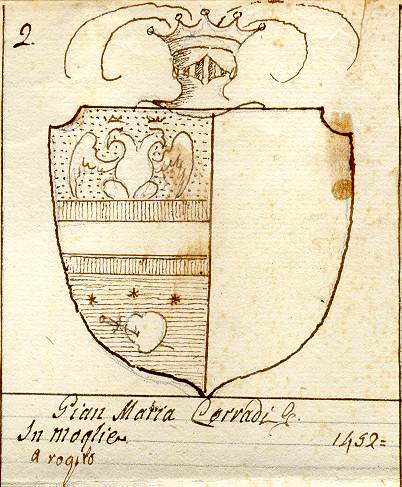 2.
Gian Maria Corradi &c.
In moglie 1452=
a rogito